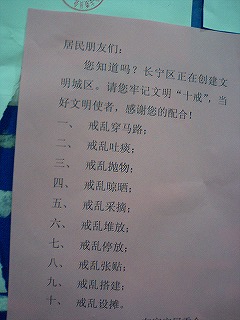 居民朋友们：
您知道吗？长宁区正在创建文
明城区。请您牢记文明“十戒”，当
好文明使者，感谢您的配合！
一、 戒乱穿马路；
二、 戒乱吐痰；
三、 戒乱抛物；
四、 戒乱晾晒；
五、 戒乱采摘；
六、 戒乱堆放；
七、 戒乱停放；
八、 戒乱张贴；
九、 戒乱搭建；
十、 戒乱设摊。